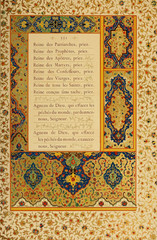 Reine des Patriarches, priez
Reine des Prophètes, priez
Reine des Apôtres, priez
Reine des Martyrs, priez
Reine des Confesseurs, priez
Reine des Vierges, priez
Reine de tous les Saints, priez
Agneau de Dieu, qui effacez les
péchés du monde, pardonnez-
nous, Seigneur
Agneau de Dieu, qui effacez
les péchés du monde, exaucez-
nous, Seigneur